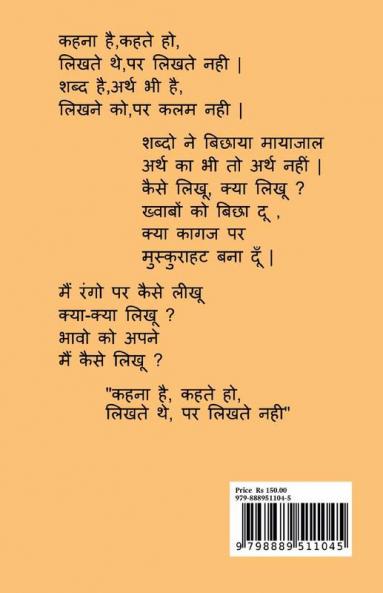 कहना है,कहते हो,
लिखते थे,पर लिखते नही |
शब्द है,अर्थ भी है,
लिखने को,पर कलम नही |
शब्दो ने बिछाया मायाजाल
अर्थ का भी तो अर्थ नहीं |
कैसे लिखू, क्या लिखू ?
ख्वाबों को बिछा दू ,
क्या कागज पर
मुस्कुराहट बना दूँ |
मैं रंगो पर कैसे लीखू
क्या-क्या लिखू ?
भावो को अपने
मैं कैसे लिखू ?
"कहना है, कहते हो,
लिखते थे, पर लिखते नही"
Price Rs 150.00
979-888951104-5
9 798889 511045